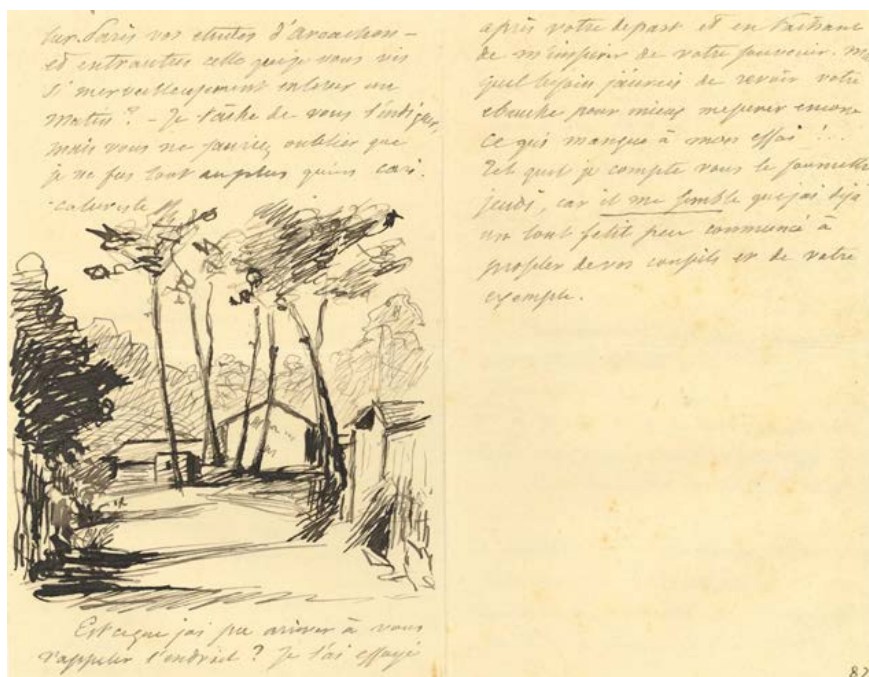 sur Paris vos etudes d'Arcachon –
et entr'autres celle que je vous vis
si merveilleusement enlever un
matin ? – Je tâche de vous l'indiquer,
mais vous ne sauriez oublier que
je ne fus tout au plus qu'un cari-
-caturiste
Est ce que j'ai pu arriver à vous
rappeler l'endroit ? Je l'ai essayé
après votre depart et en tachant
de m'inspirer de votre souvenir. Mais
quel besoin j'aurais de revoir votre
ebauche pour mieux mesurer encore
ce qui manque à mon essai !...
Tel quel je compte vous le soumettre
jeudi, car il me semble que j'ai déjà
un tout petit peu commencé à
profiter de vos conseils et de votre
exemple.
87